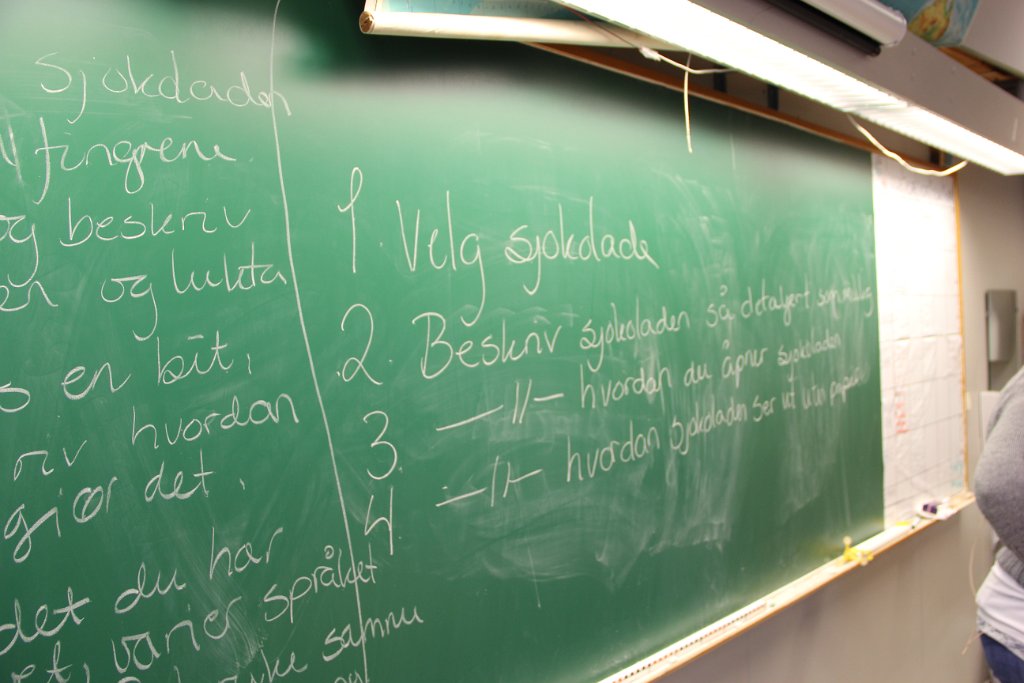 sjokoladen
fingrene
og beskriv
og lukta
en bit,
hvordan
gjør det.
det du har
varier språket
samnu
1. Velg sjokolade
2. Beskriv sjokoladen så detaljert som mulig
3. —//— hvordan du åpner sjokoladen
4. —//— hvordan sjokoladen ser ut uten papir